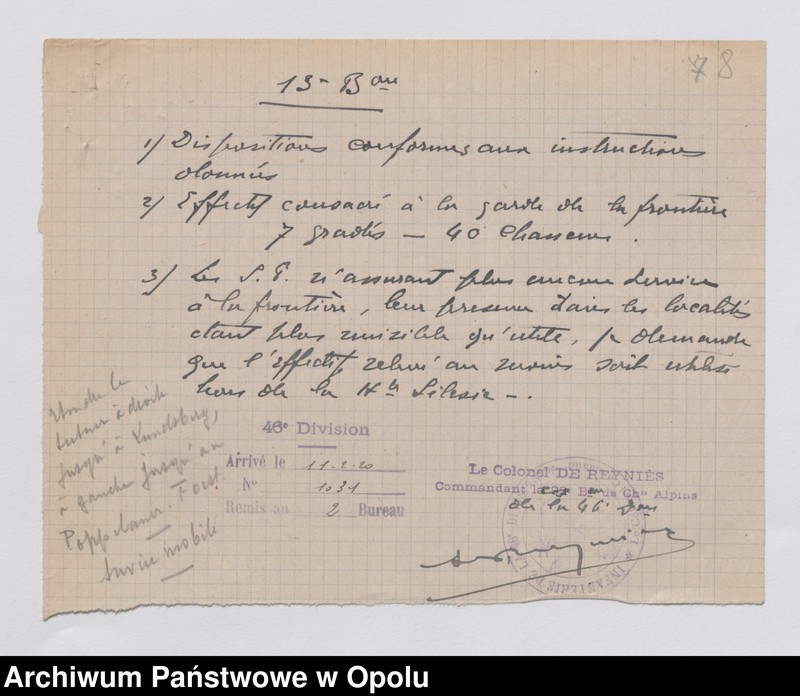 78
13e Bon
1) Dispositions conformes aux instructions
données
2) Effectif consacré à la garde de la frontière
7 gradés — 40 Chasseurs.
3) Les S.P. n'assurant plus aucun service
à la frontière, leur présence dans les localités
étant plus nuisible qu'utile, je demande
que l'effectif relevé au moins soit utilisé
hors de la Hte Silésie —.
à droite
jusqu'à Landsberg,
à gauche jusqu'au
Poppelauer. Forst
Service mobile
46e Division
Arrivé le 11-2-20
No 1031
Remis au 2 Bureau
Le Colonel DE REYNIÈS
Commandant la Bon de Chrs Alpins
de la 46e Don
Archiwum Państwowe w Opolu